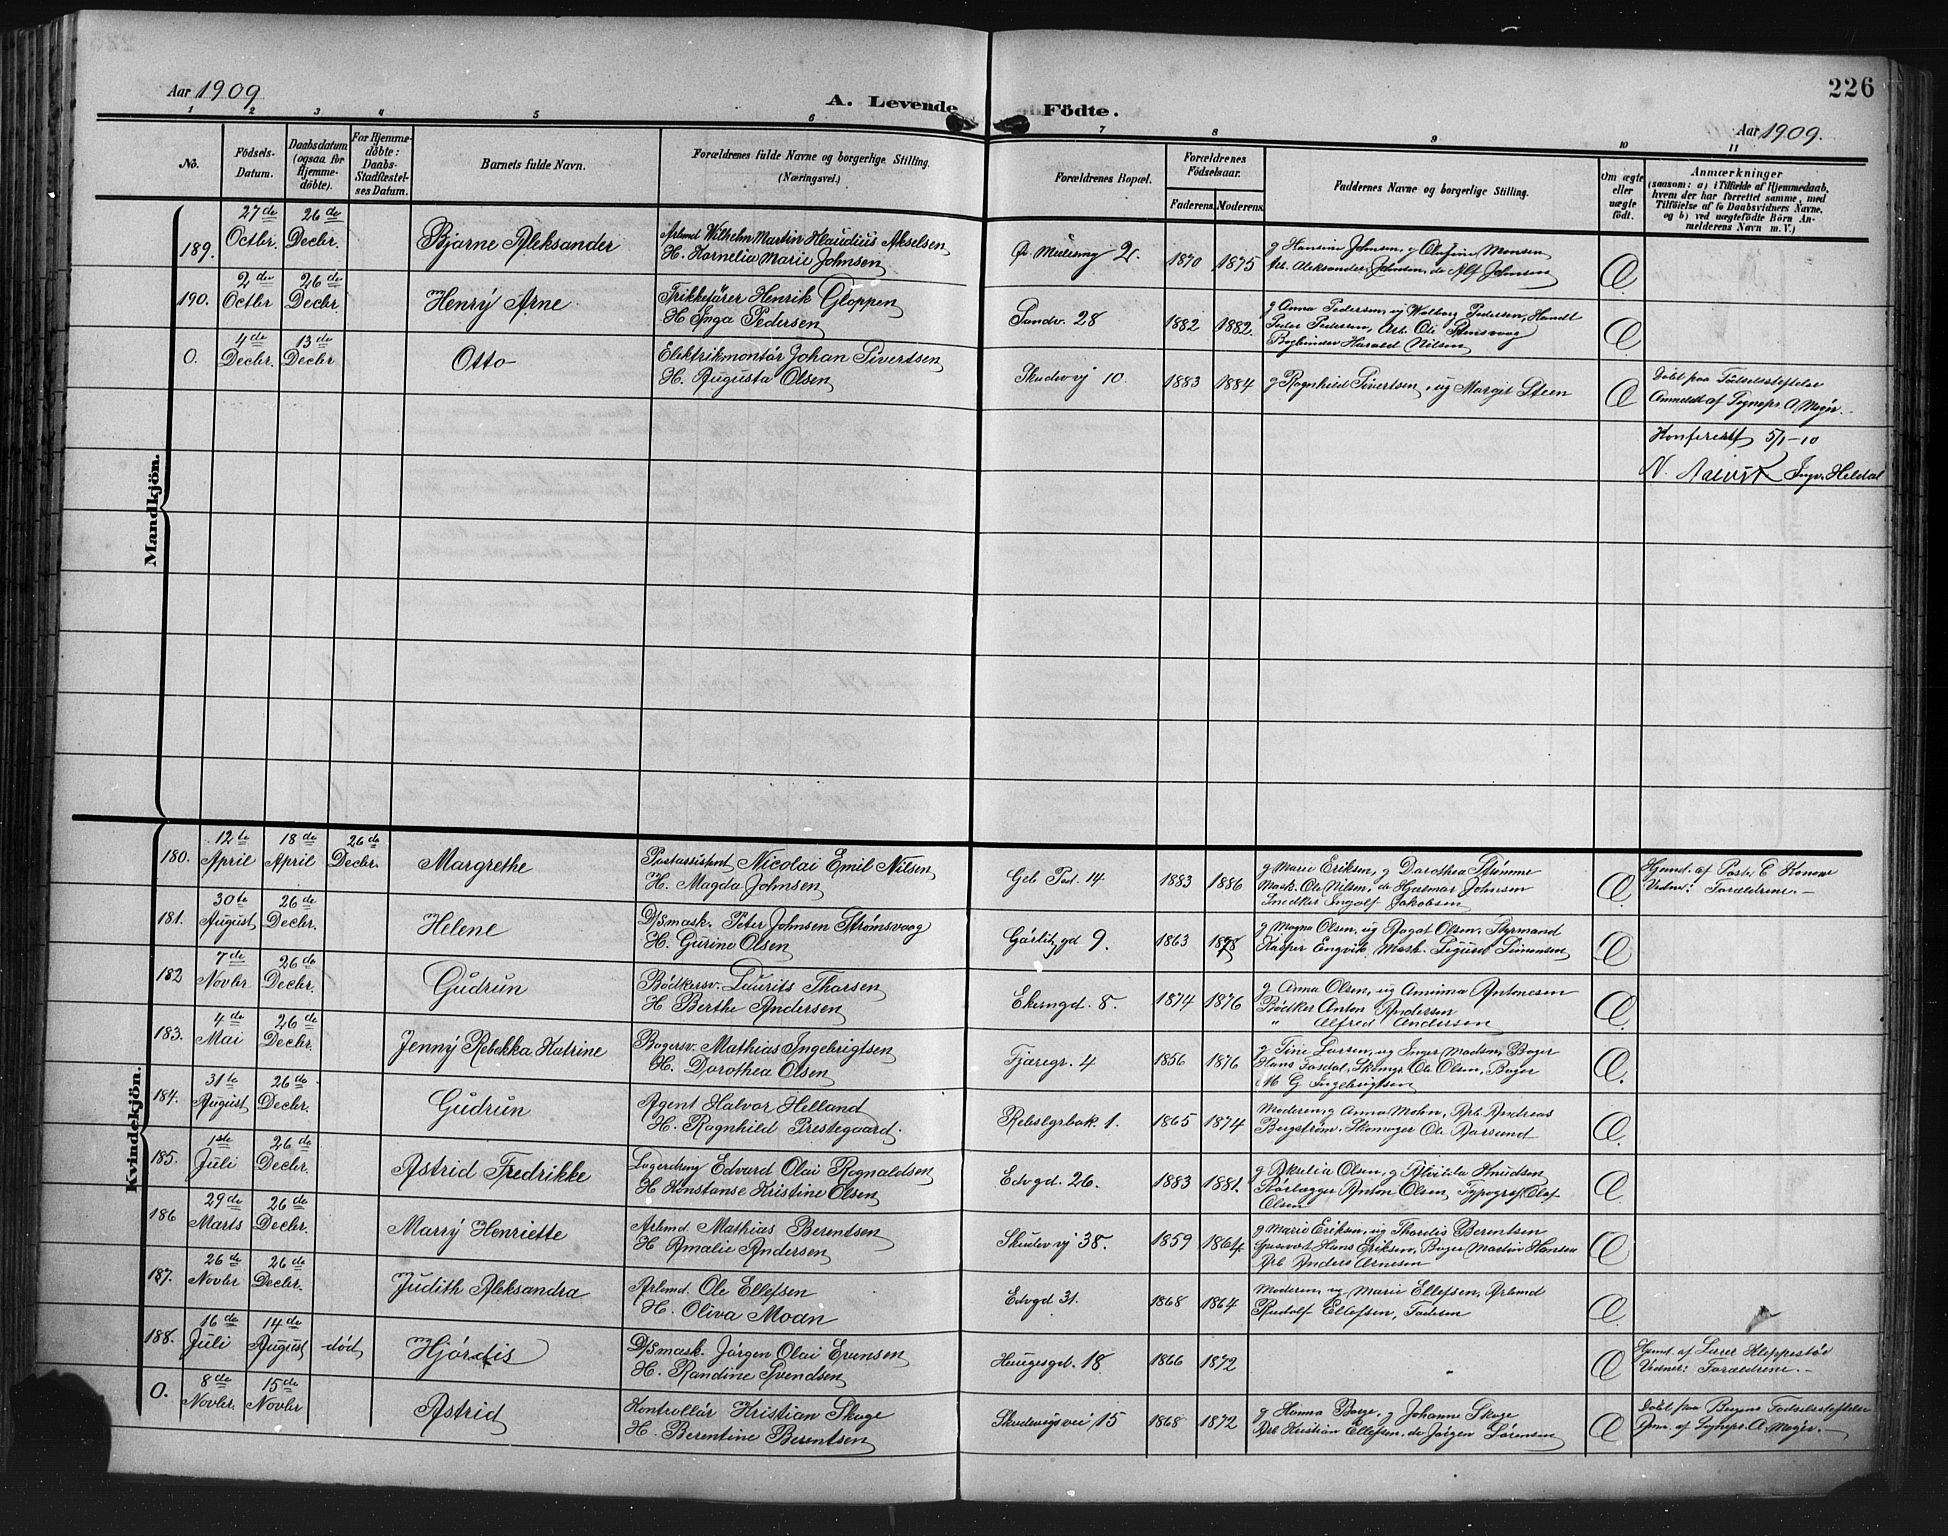 226
Aar 1909
A. Levende Födte.
Aar 1909.
1 2 3 4 5 6 7 8 9 10 11
No.
Födsels-Datum.
Daabsdatum (ogsaa for Hjemme-döbte).
For Hjemme-döbte: Daabs-Stadfæstel-ses Datum.
Barnets fulde Navn.
Forældrenes fulde Navne og borgerlige Stilling.
(Næringsvei.)
Forældrenes Bopæl.
Forældrenes Födselsaar.
Faderens. Moderens.
Faddernes Navne og borgerlige Stilling.
Om ægte eller uægte födt.
Anmærkninger
(saasom: a) i Tilfælde af Hjemmedaab,
hvem der har forrettet samme, med
Tilföielse af to Daabsvidners Navne,
og b) ved uægtefödte Börn An-
melderens Navn m. V.)
Mandkjön.
189. 27de Octbr. 26de Decbr. Bjarne Aleksander
Arbmd Wilhelm Martin Klaudius Akselsen
H. Kornelia Marie Johnsen
2. 1870 1875
g Hansine Johnsen, g Olufine Monsen
Arb. Aleksander Johnsen, do Alf Johnsen
Æ
190. 2de Octbr 26de Decbr. Henrÿ Arne
Trikkefører Henrik Gloppen
H. Inga Pedersen
Sandv. 28 1882 1882.
g Anna Pedersen, ug Walborg Pedersen, Handl
Peder Pedersen, Arb. Ole
Bogbinder Harald Nilsen
Æ
0. 4de Decbr. 13de Decbr Otto
Elektrikmontør Johan Sivertsen
H. Augusta Olsen
Skudevvj 10. 1883 1884
g Ragnhild Sivertsen, ug Margit Steen
Æ
Døbt paa Fødselsstiftelse
Anmeldt af Sognepr. A Meÿer.
Konferert 5/1-10
Ingv. Heldal
Kvindekjön.
180. 12te April 18de April 26de Decbr. Margrethe
Postassistent Nicolai Emil Nilsen
H. Magda Johnsen
Geb Pod. 14 1883 1886
g Marie Eriksen, g Dorothea Stømme
Mask. Ole Nilsen, do Hjalmar Johnsen
Ingolf Jakobsen
Æ
Hjemd. af Past. E Honove
Vidner: Forældrene. —
181. 30te August 26de Decbr. Helene
D/Smask. Peter Johnsen Strømsvaag
H. Gurine Olsen
9. 1863 1878
g Magna Olsen, ug Ragat Olsen, Styrmand
Kasper Engvik, Mask. Sigurd Simonsen
Æ
182 7de Novbr. 26de Decbr. Gudrun
Bødkersv. Laurits Tharsen
H. Berthe Andersen
Ekerengd. 8. 1874 1876
g Anna Olsen, ug Antonesen
Bødker Anton Andersen
" Alfred Andersen
Æ.
183. 4de Mai 26de Decbr. Jennÿ Rebekka Katrine
Bagersv. Mathias Ingebrigtsen
H. Dorothea Olsen
Fjæregr. 4 1856 1876
g Tine Larsen, ug Inger Madsen, Bager
Hans Ole Olsen, Bager
M G Ingebrigtsen
Æ.
184. 31te August 26de Decbr. Gudrun
Agent Halvor Helland
H. Ragnhild Prestegaard.
Rebslgrbak. 1. 1865 1874
Moderen, g Anna Mohn, Arb. Andreas
Bergstrøm, Skomager Ole Aarsand
Æ.
185. 1ste Juli 26de Decbr. Astrid Fredrikke
Lagerdreng Edvard Olai Rognaldsen
H Konstanse Kristine Olsen
Edvgd. 26. 1883 1881.
g Akselia Olsen, g Alvilda Knudsen
Anton Olsen, Typograf Olaf
Olsen
Æ.
186 29de Marts 26de Decbr. Marrÿ Henriette
Arbmd. Mathias Berentsen
H Amalie Andersen
Skutevvj 38. 1859 1864.
g Marie Eriksen, ug Thordis Berentsen
Hans Eriksen, Bager Martin Hansen
Arb Anders Arnesen
Æ
187. 26de Novbr 26de Decbr. Judith Aleksandra
Arbmd. Ole Ellefsen
H. Oliva Moan
Edvgd 31. 1868 1864
Moderen, ug Marie Ellefsen, Arbmd
Rudolf Ellefsen, Faderen
Æ.
188. 16de Juli 14de August død Hjørdis
D/Smask. Jørgen Olai Evensen
H. Randine Svendsen
Haugesgd. 18 1866 1872
Æ
Hjemd. af Lærer Kleppestø
Vidner: Forældrene —
0. 8de Novbr. 15de Novbr Astrid
Kontrollør Kristian Skage
H. Berentine Berentsen
Skudevigsvei 15 1868 1872
g Hanna Berge, g Johanne Skage
Arb Kristian Ellefsen, do Jørgen Sørensen
Æ
Døbt paa Bergens Fødselsstiftelse
Anm. af Sognepr. A. Meÿer. —